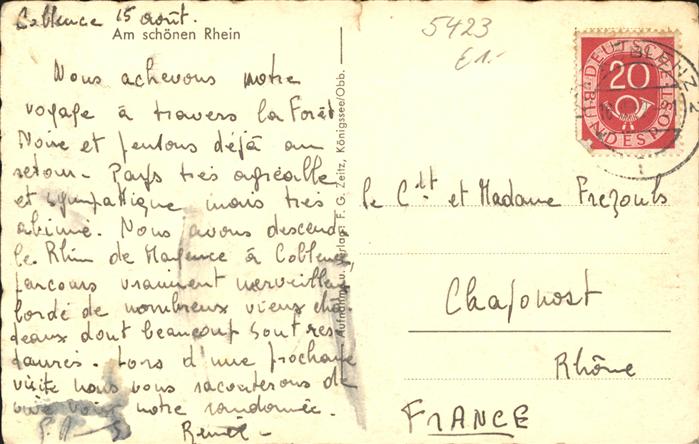 Coblence 15 août.
Am schönen Rhein
Nous achevons notre
voyage à travers la Forêt
Noire et pensons déjà au
retour - Pays très agréable
et sympathique mais très
abimé. Nous avons descendu
le Rhin de Mayence à Coblence,
parcours vraiment merveilleux
bordé de nombreux vieux châ-
teaux dont beaucoup sont res-
taurés. Lors d'une prochaine
visite nous vous raconterons de
vive voix notre randonnée.
Aufnahme u. Verlag: F. G. Zeitz, Königssee/Obb.
5423
E1.-
DEUTSCHE BUNDESPOST
20
le Cdt et Madame Frezouls
Chaponost
Rhône
FRANCE